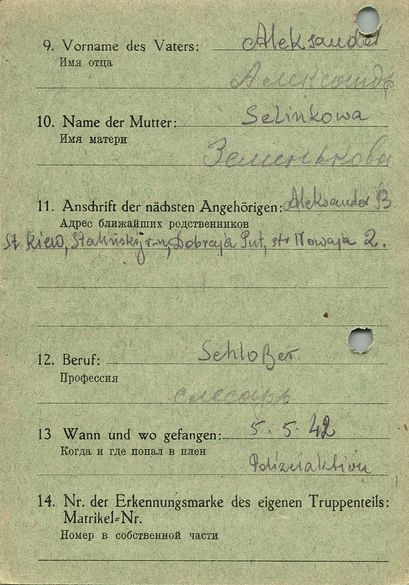 9. Vorname des Vaters: Aleksander
Имя отца
Александр
10. Name der Mutter: Selinkowa
Имя матери
Зеленькова
11. Anschrift der nächsten Angehörigen: Aleksander B.
Адрес ближайших родственников
St. Kiew, Stalinskij r-n, Dobraja Put, str Nowaja 2.
12. Beruf: Schloßer
Профессия
слесарь
13 Wann und wo gefangen: 5. 5. 42
Когда и где попал в плен
Polizeiaktion
14. Nr. der Erkennungsmarke des eigenen Truppenteils:
Matrikel-Nr.
Номер в собственной части